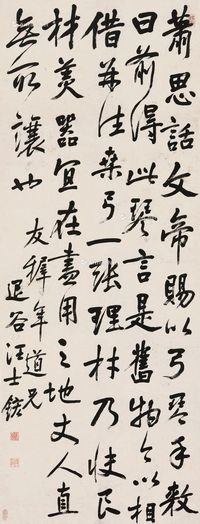 蕭思話文帝賜以弓琴手敕
曰前得此琴言是舊物今以相
借并往桑弓一張理材乃快良
材美器宜在盡用之地丈人直
無所讓也
友鐸年道兄
退谷汪士鋐